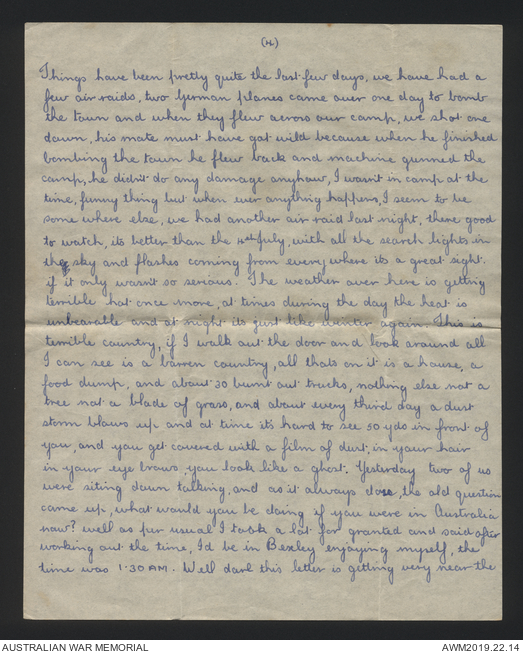 (4)
Things have been pretty quite the last few days, we have had a
few air raids, two German planes came over one day to bomb
the town and when they flew across our camp, we shot one
down, his mate must have got wild because when he finished
bombing the town he flew back and machine gunned the
camp, he didn't do any damage anyhow, I wasn't in camp at the
time, funny thing but when ever anything happens, I seem to be
some where else, we had another air raid last night, there good
to watch, its better than the 4th July, with all the search lights in
the sky and flashes coming from every where its a great sight.
if it only wasn't so serious. The weather over here is getting
terrible hot once more, at times during the day the heat is
unbearable and at night its just like winter again. This is
terrible country, if I walk out the door and look around all
I can see is a barren country, all thats on it is a house, a
food dump, and about 30 burnt out trucks, nothing else not a
tree not a blade of grass, and about every third day a dust
storm blows up and at time it's hard to see 50 yds in front of
you, and you get covered with a film of dust, in your hair
in your eye brows, you look like a ghost. Yesterday two of us
were siting down talking, and as it always does, the old question
came up, what would you be doing if you were in Australia
now? well as per usual I took a lot for granted and said after
working out the time, I'd be in Bexley enjoying myself, the
time was 1.30 AM. Well darl this letter is getting very near the
AUSTRALIAN WAR MEMORIAL
AWM2019.22.14